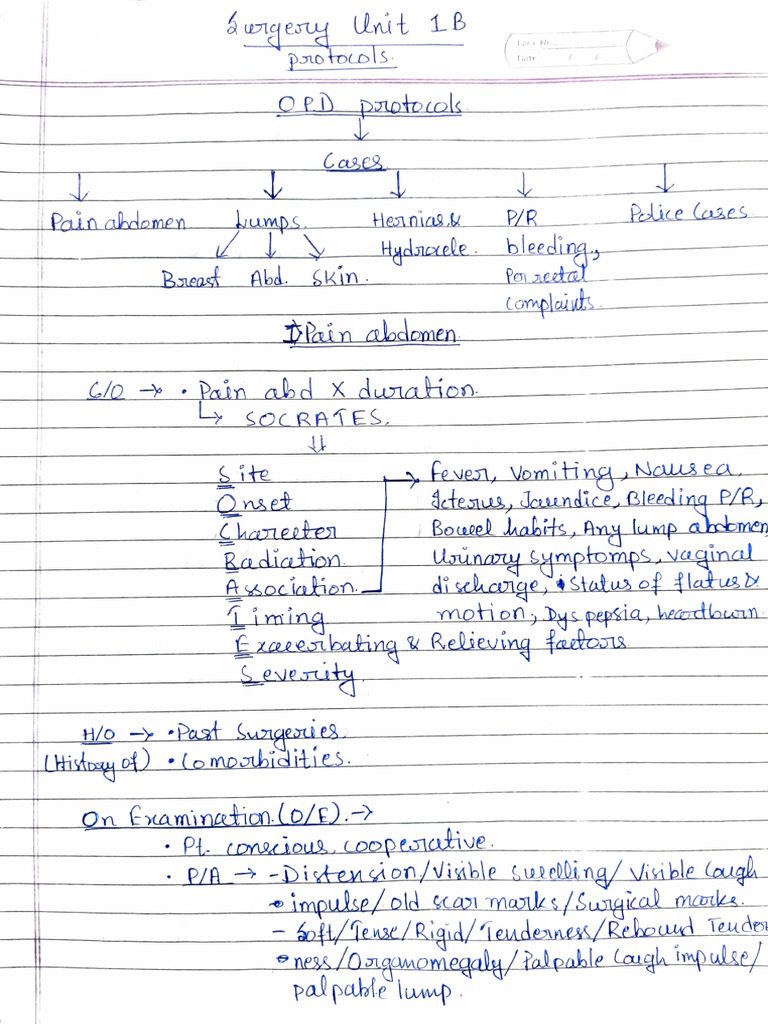 Surgery Unit 1B
protocols.
Date
OPD protocols
↓
Cases
Pain abdomen Lumps. Hernias & P/R Police Cases
Hydrocele. bleeding,
Breast Abd. Skin. Per rectal
complaints.
I Pain abdomen.
C/O → • Pain abd X duration.
↳ SOCRATES.
⇓
Site → Fever, Vomiting, Nausea,
Onset Icterus, Jaundice, Bleeding P/R,
Charecter Bowel habits, Any lump abdomen,
Radiation Urinary symptomps, vaginal
Association discharge, Status of flatus &
Timing motion, Dyspepsia, heartburn.
Exacerbating & Relieving factors
Severity
H/O → • Past Surgeries.
(History of) • Comorbidities.
On Examination (O/E). →
• Pt. conscious, cooperative.
• P/A → - Distension/Visible swelling/Visible Cough
impulse/old scar marks/Surgical marks.
- Soft/Tense/Rigid/Tenderness/Rebound Tender
ness/Organomegaly/Palpable Cough impulse/
palpable lump.